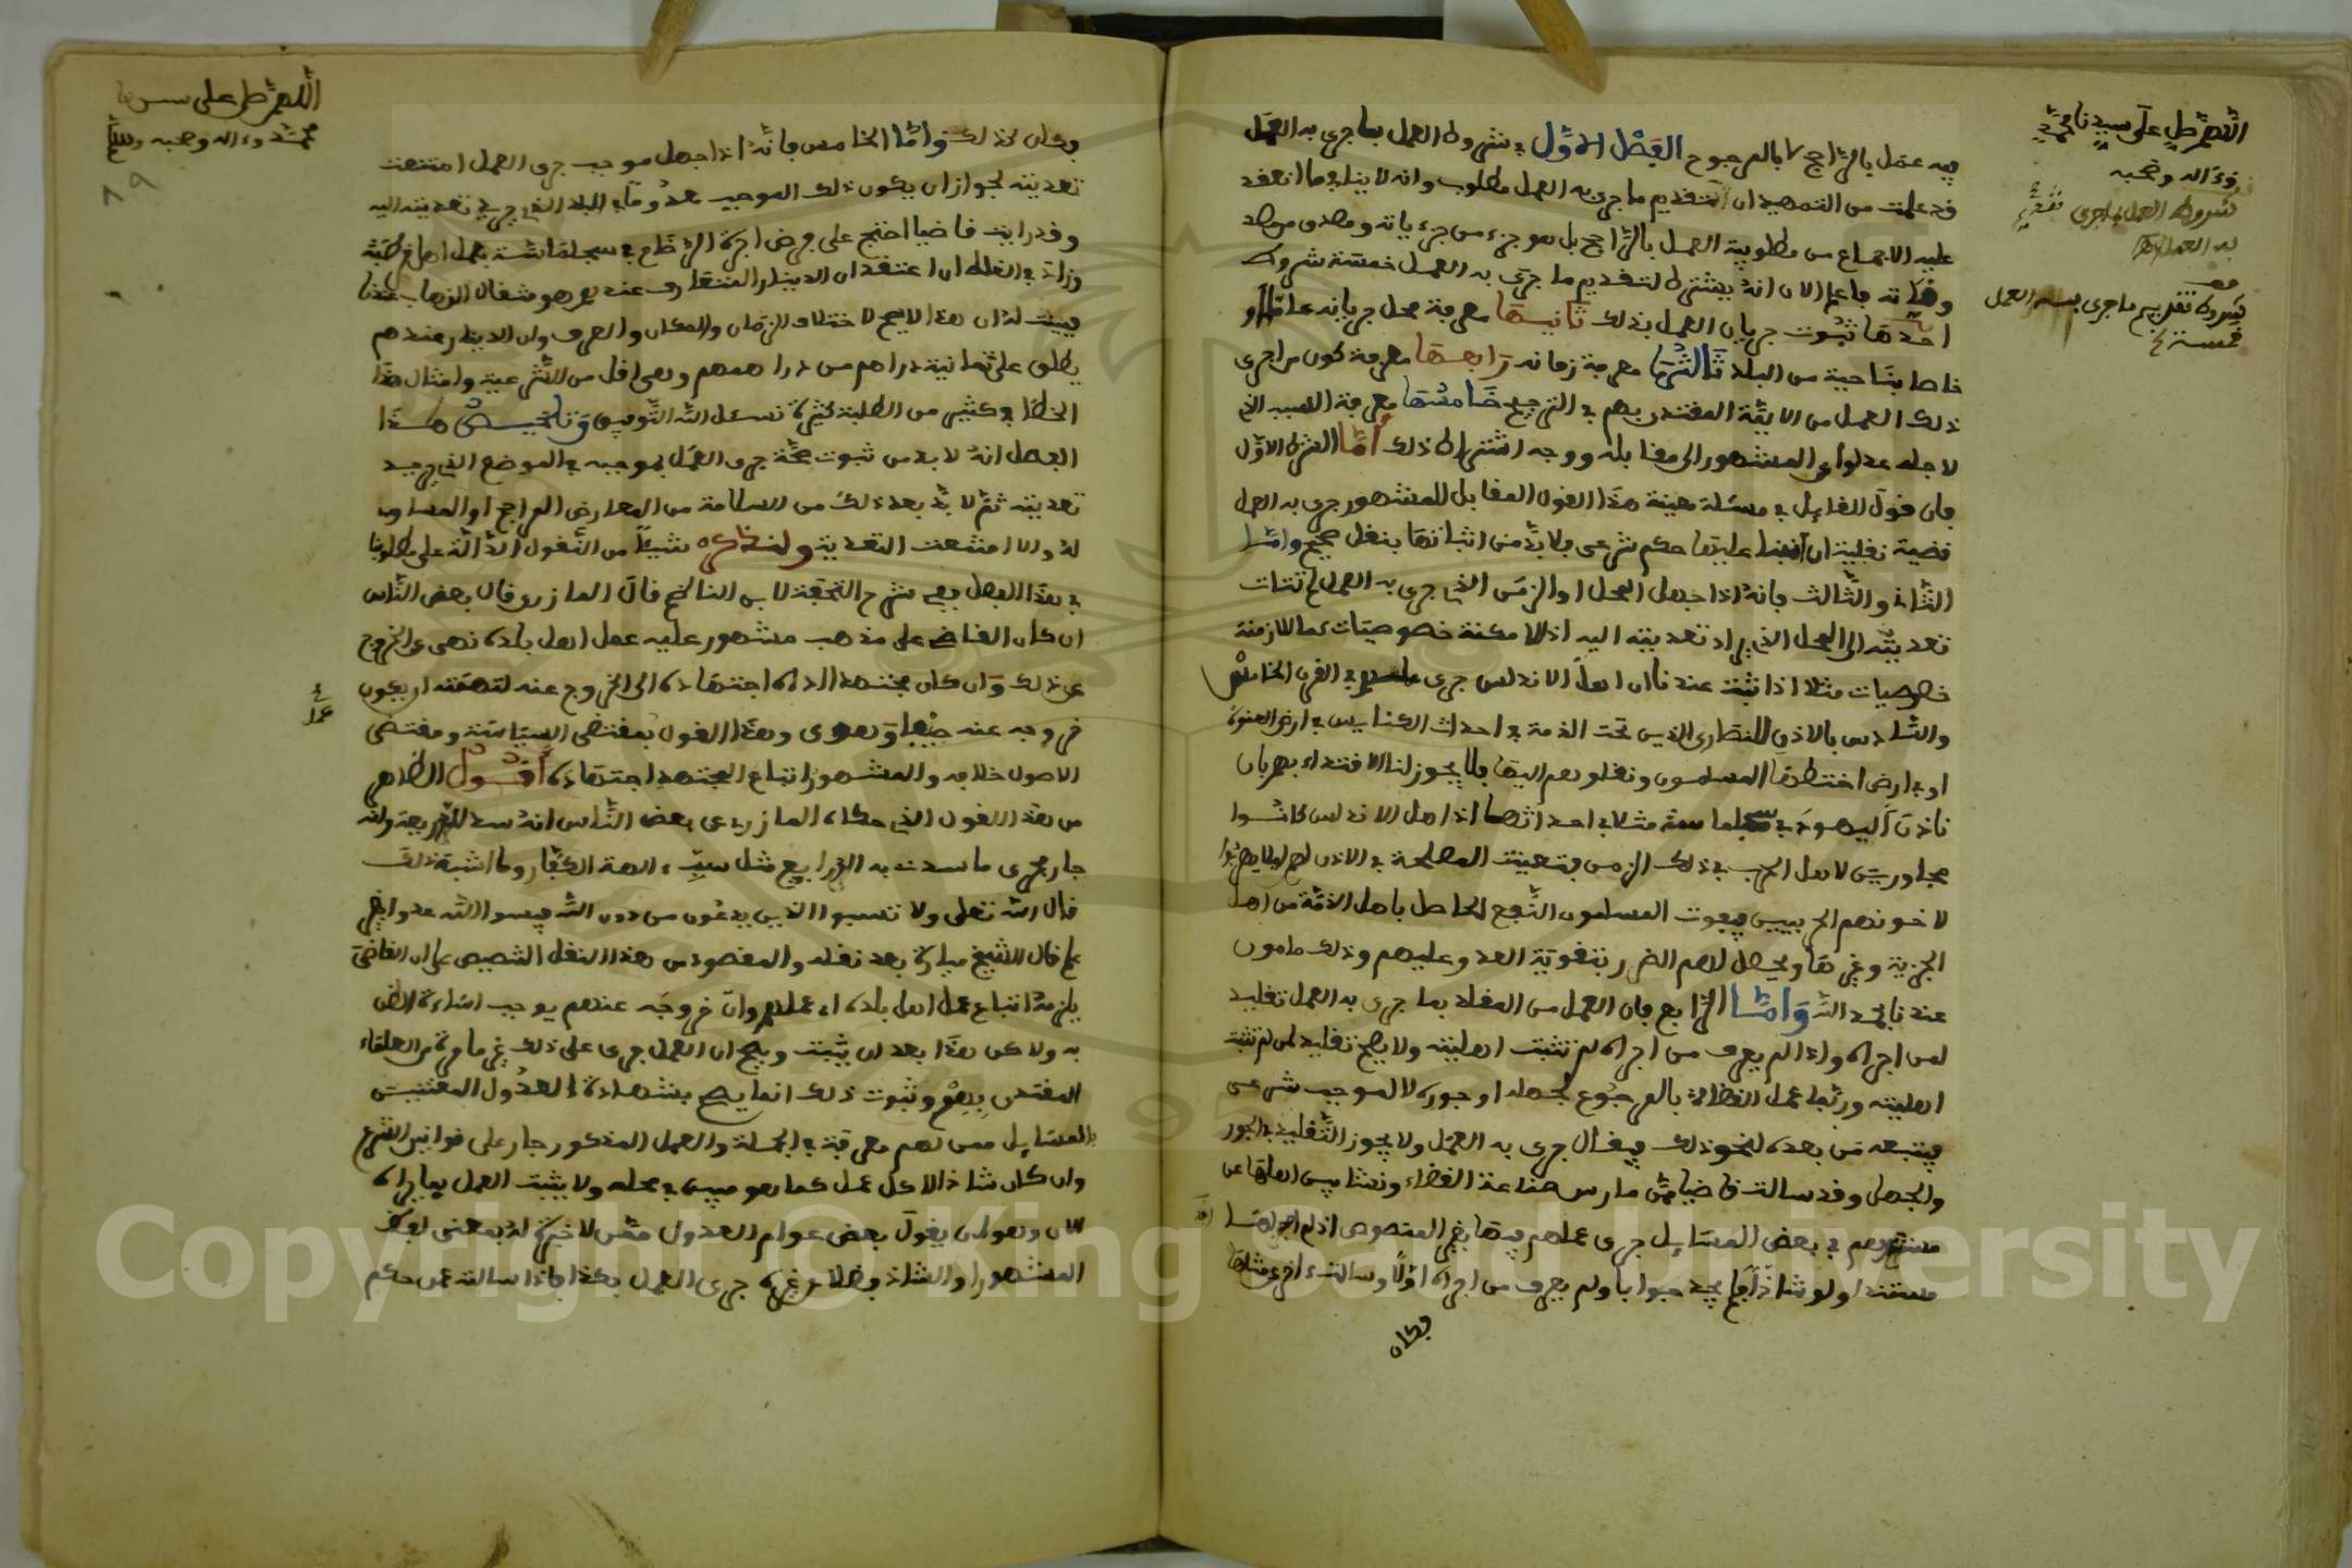 اللهم صل على سيدنا محمد
وءاله وصحبه
شروط العمل بما جرى
به العمل
شروط تقديم ما جرى به العمل
خمسة
فيه عمل بالراجح لا بالمرجوح الفصل الاول في شروط العمل بما جرى به العمل
قد علمت من التمهيد ان تقديم ما جرى به العمل مطلوب وانه لا ينافي ما انعقد
عليه الاجماع من مطلوبية العمل بالراجح بل هو جزء من جزءياته ومصدق من مصد
وقاته فاعلم الان انه يشترط لتقديم ما جرى به العمل خمسة شروط
احدها ثبوت جريان العمل بذلك ثانيها معرفة محل جريانه عاما او
خاصا بناحية من البلد ثالثها معرفة زمانه رابعها معرفة كون من اجرى
ذلك العمل من الايمة المقتدى بهم في الترجيح خامسها معرفة السبب الذي
لاجله عدلوا عن المشهور الى مقابله ووجه اشتراط ذلك أما الشرط الاول
فان قول القايل في مسئلة معينة هذا القول المقابل للمشهور جرى به العمل
قضية نقلية ان انبنا عليها حكم شرعي فلا بد من اثباتها بنقل صحيح واما
الثاني والثالث فانه اذا جهل المحل او الزمن الذي جرى به العمل لم تتات
تعديته الى المحل الذي يراد تعديته اليه اذ للامكنة خصوصيات كما للازمنة
خصوصيات مثلا اذا ثبت عندنا ان اهل الاندلس جرى عملهم في القرن الخامس
والسادس بالاذن للنصارى الذين تحت الذمة في احداث الكنايس في ارض العنوة
او في ارض اختطها المسلمون ونقلوهم اليها فلا يجوز لنا الاقتداء بهم بان
ناذن لليهود في سجلماسة مثلا في احداثها اذ اهل الاندلس كانوا
مجاورين لاهل الحرب في ذلك الزمن فتعينت المصلحة في الاذن لهم ليلا يهربوا
لاخوانهم الحربيين فيفوت المسلمون النفع الحاصل باهل الذمة من اهل
الجزية وغيرها ويحصل لهم الضرر بتقوية العدو عليهم وذلك مامون
عندنا بحمد الله وأما الرابع فان العمل من المقلد بما جرى به العمل تقليد
لمن اجراه واذا لم يعرف من اجراه لم تثبت اهليته ولا يصح تقليد لمن لم تثبت
اهليته وربما عمل القضاة بالمرجوع لجهله او جوره لا لموجب شرعي
فيتبعه من بعده لنحو ذلك فيقال جرى به العمل ولا يجوز التقليد في الجور
والجهل وقد سالت قاضيا ممن مارس صناعة القضاء ونشا بين اهلها عن
مستندهم في بعض المسايل جرى عملهم فيها بغير المنصوص اذ لم اجد لها
مستندا ولو شاذا فلم يجد جوابا ولم يعرف من اجراه اولا وسالت ءاخر عن مثلها
فكان
اللهم صل على سيدنا
محمد وءاله وصحبه وسلم
79
فكان كذلك واما الخامس فانه اذا جهل موجب جرى العمل امتنعت
تعديته لجواز ان يكون ذلك الموجب معدوما في البلد الذي جرى في تعديته اليه
وقد رايت قاضيا احتج على فرض اجرة الرضاع في سجلماسة بعمل اهل قرطبة
وزاد في الغلط ان اعتقد ان الدينار المتعارف عندهم هو مثقال الذهب عندنا
فبينت له ان هذا لا يصح لاختلاف الزمان والمكان والعرف وان الدينار عندهم
يطلق على ثمانية دراهم من دراهمهم وهي اقل من الشرعية وامثال هذا
الخطا في كثير من الطلبة كثيرة نسئل الله التوفيق وتلخيص هذا
الفصل انه لا بد من ثبوت صحة جرى العمل بموجبه في الموضع الذي يريد
تعديته ثم لا بد بعد ذلك من السلامة من المعارض الراجح او المساوي
له والا امتنعت التعدية ولنذكره شيئا من النقول الدالة على مطلوبنا
في هذا الفصل ففي شرح التحفة لابن الناظم قال المازري قال بعض الناس
ان كان القاضي على مذهب مشهور عليه عمل اهل بلده نهي عن الخروج
عن ذلك وان كان مجتهدا اداه اجتهاده الى الخروج عنه لتهمته ان يكون
خروجه عنه حيفا وهوى وهذا القول بمقتضى السياسة ومقتضى
الاصول خلافه والمشهور اتباع المجتهد اجتهاده أقول الظاهر
من هذا القول الذي حكاه المازري عن بعض الناس انه سد للذريعة وانه
جار مجرى ما سدت به الذرايع مثل سب ءالهة الكفار وما اشبه ذلك
قال الله تعلى ولا تسبوا الذين يدعون من دون الله فيسبوا الله عدوا بغير
علم قال الشيخ ميارة بعد نقله والمقصود من هذا النقل التنصيص على ان القاضي
يلزمه اتباع عمل اهل بلده اي عملهم وان خروجه عندهم يوجب اساءة الظن
به ولاكن هذا بعد ان يثبت ويصح ان العمل جرى على ذلك غير ما مرة من العلماء
المقتدى بهم وثبوت ذلك انما يصح بشهادة العدول المثبتين
في المسايل ممن لهم معرفة في الجملة والعمل المذكور جار على قوانين الشرع
وان كان شاذا لا كل عمل كما هو مبين في محله ولا يثبت العمل بما يراه
الان وهو ان يقول بعض عوام العدول ممن لا خبرة له بمعنى لفظ
المشهور او الشاذ فضلا عن غيره جرى العمل بكذا فاذا سالته عمن حكم